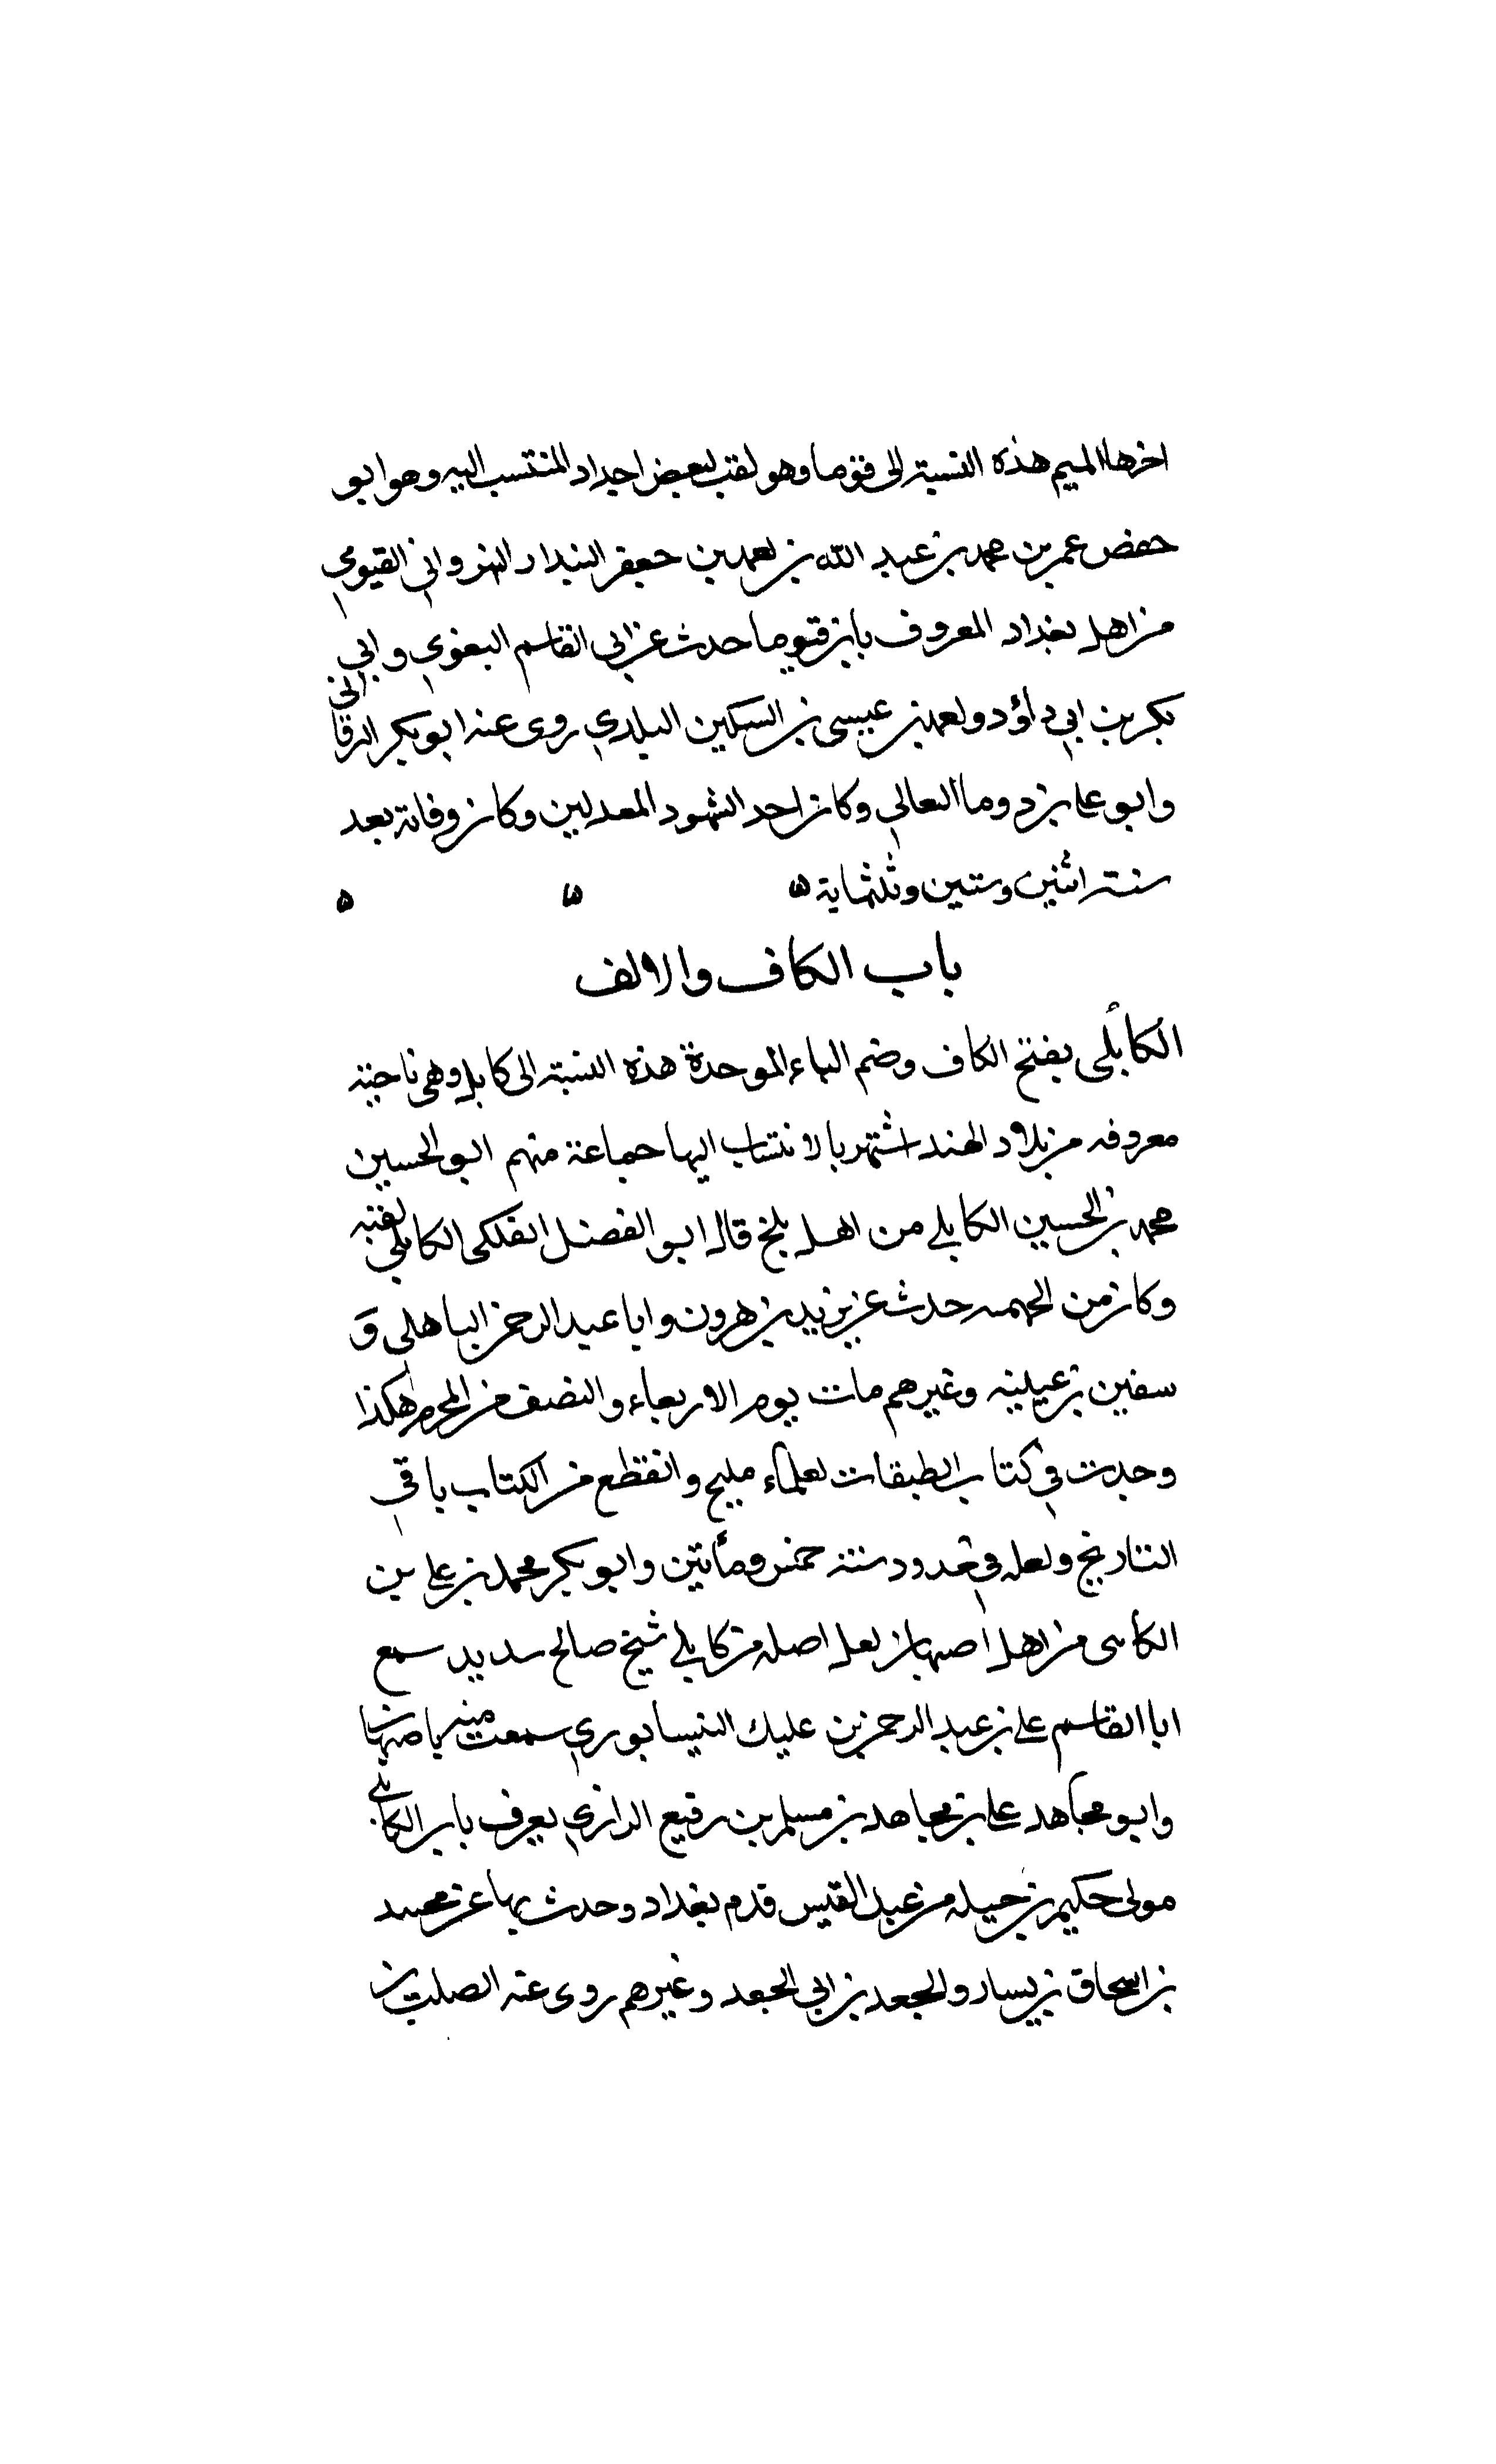 اخرها الميم هذه النسبة الى قيوما وهو لقب لبعض اجداد المنتسب اليه وهو ابو
حفص عمر بن محمد بن عبد الله بن محمد بن جعفر البندار النهرواني القيومي
من اهل بغداد المعروف بابن قيوما حدث عن ابي القاسم البغوي وابي
بكر بن ابي داؤد ومحمد بن عيسى بن السكين البلدي روى عنه ابو بكر البرقاني
وابو علي بن دوما النعالي وكان احد الشهود المعدلين وكان وفاته بعد
سنة اثنين وستين وثلثماية ه ه ه
باب الكاف والالف
الكابُلى بفتح الكاف وضم الباء الموحدة هذه النسبة الى كابل وهي ناحية
معروفه من بلاد الهند اشتهر بالانتساب اليها جماعة منهم ابو الحسين
محمد بن الحسين الكابلي من اهل بلخ قال ابو الفضل الفلكى الكابلي لقبه
وكان من الجهمية حدث عن يزيد بن هرون وابا عبد الرحمن الباهلي و
سفين بن عيينه وغيرهم مات يوم الاربعاء والنصف من المحرم هكذا
وجدت في كتاب الطبقات لعلماء بلخ وانقطع من الكتاب باقي
التاريخ ولعله في حدود سنة خمس ومأتين وابو بكر محمد بن علي بن
الكابلى من اهل اصبهان لعل اصله من كابل شيخ صالح سديد سمع
ابا القاسم علي بن عبد الرحمن بن عليك النيسابوري سمعت منه باصبهان
وابو مجاهد علي بن مجاهد بن مسلم بن رفيع الرازي يعرف بابن الكابلي
مولى حكيم بن جبله من عبد القيس قدم بغداد وحدث بها عن محمد
بن اسحاق بن يسار والجعد بن ابي الجعد وغيرهم روى عنه الصلت بن